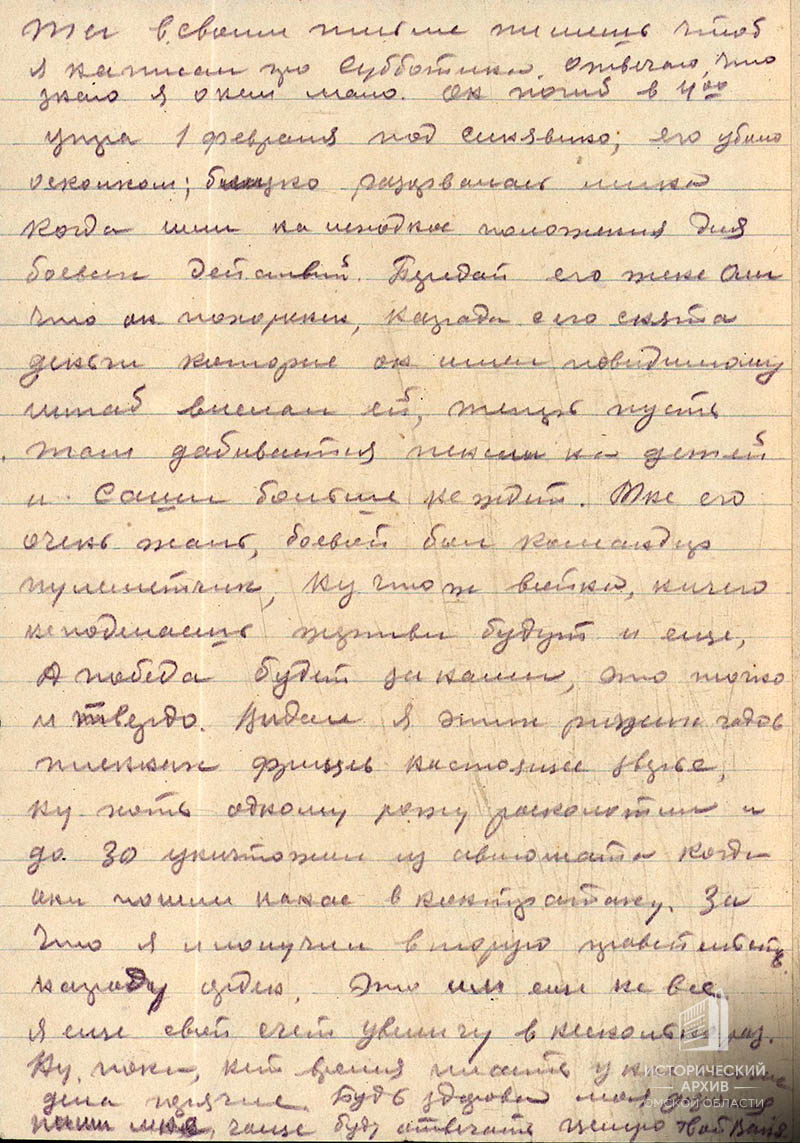 Ты в своем письме пишешь чтоб
я написал про Субботина. Отвечаю, что
знаю я о нем мало. Он погиб в 4⁰⁰
утра 1 февраля под Синявино; его убило
осколком; близко разорвалась мина
когда шли на исходное положения для
боевых действий. Передай его жене Оли
что он похоронен, награда с его снята
деньги которые он имел повидимому
штаб выслал ей, теперь пусть
там дабивается пенсии на детей
и Саши больше не ждет. Мне его
очень жаль, боевой был командир
пулеметчик, ну что ж война, ничего
неподелаешь жертвы будут и еще,
А победа будет за нами, это точно
и твердо. Видал я этих рыжих гадов
пленных фрицев настоящие зверье,
ну хоть одному рожу расколотил и
до 30 уничтожил из автомата когда
они пошли на нас в контратаку. За
что я и получил вторую правительств.
награду орден. Это им еще не все
я еще свой счет увеличу в несколько раз.
Ну, пока, нет время писать у
дела горячие. Будь здорова моя
пиши мне, чаще буду отвечать целую твой Ваня
ИСТОРИЧЕСКИЙ
АРХИВ
ОМСКОЙ ОБЛАСТИ